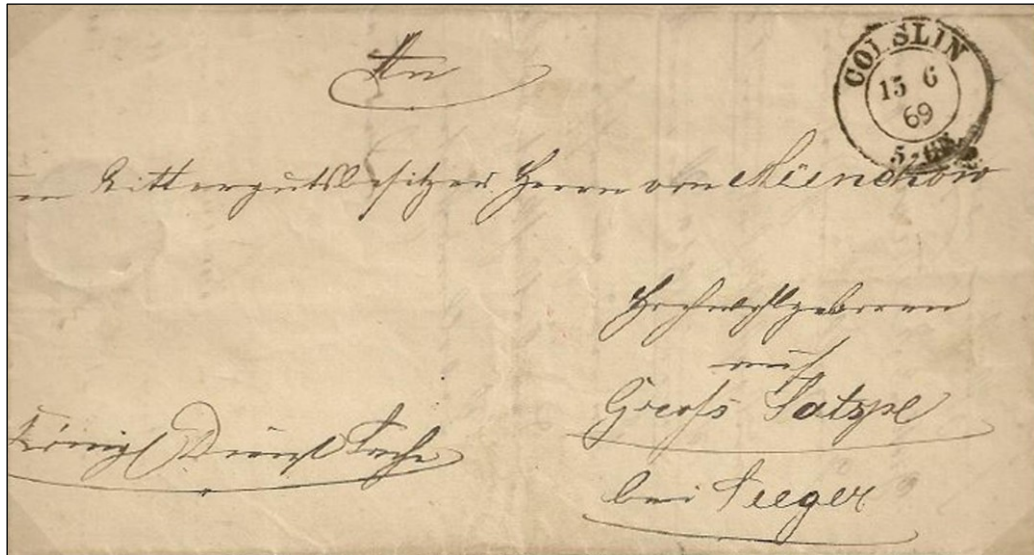 An
COESLIN
15 6
69
5-6N.
den Rittergutsbesitzer Herrn von Münchow
Hochwohlgeboren
auf
Gross Satspe
bei Seeger
Königl Dienst Sache